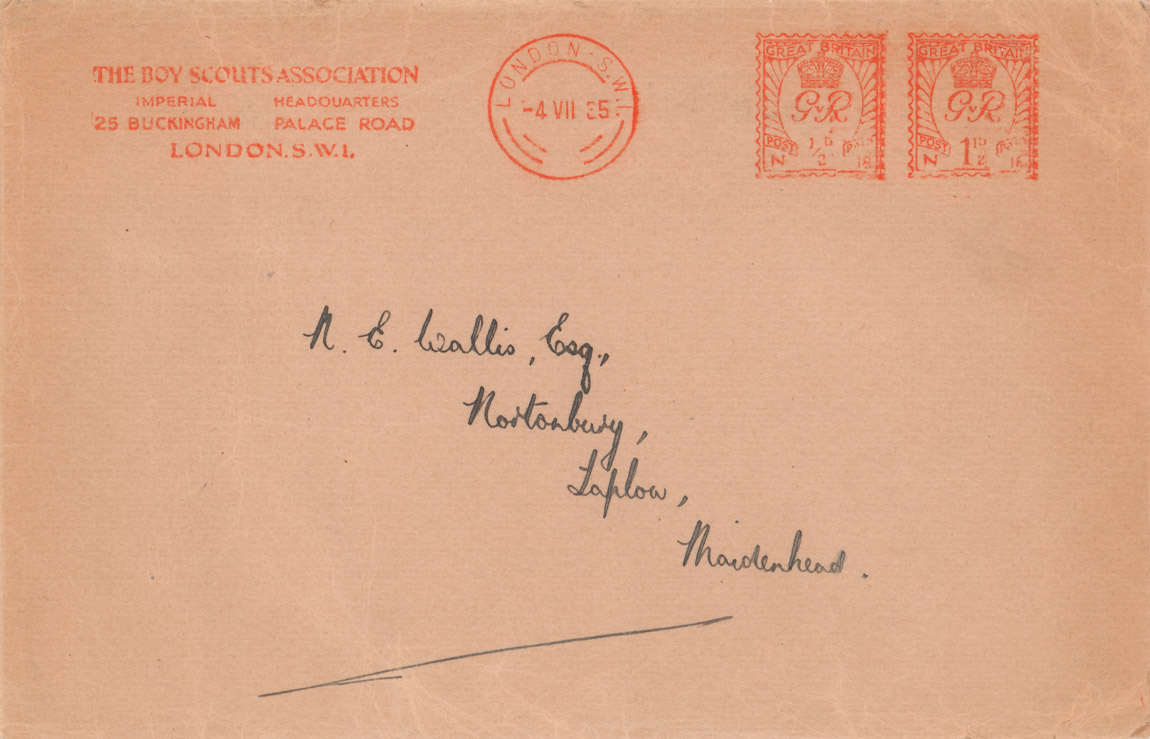 THE BOY SCOUTS ASSOCIATION
IMPERIAL HEADQUARTERS
25 BUCKINGHAM PALACE ROAD
LONDON. S.W.1.
LONDON - S.W.1
-4 VII 35
GREAT BRITAIN
GvR
POST PAID
1/2 D
N 16
GREAT BRITAIN
GvR
POST PAID
1 1/2 D
N 16
N. E. Wallis, Esq.,
Nortonbury,
Taplow,
Maidenhead.